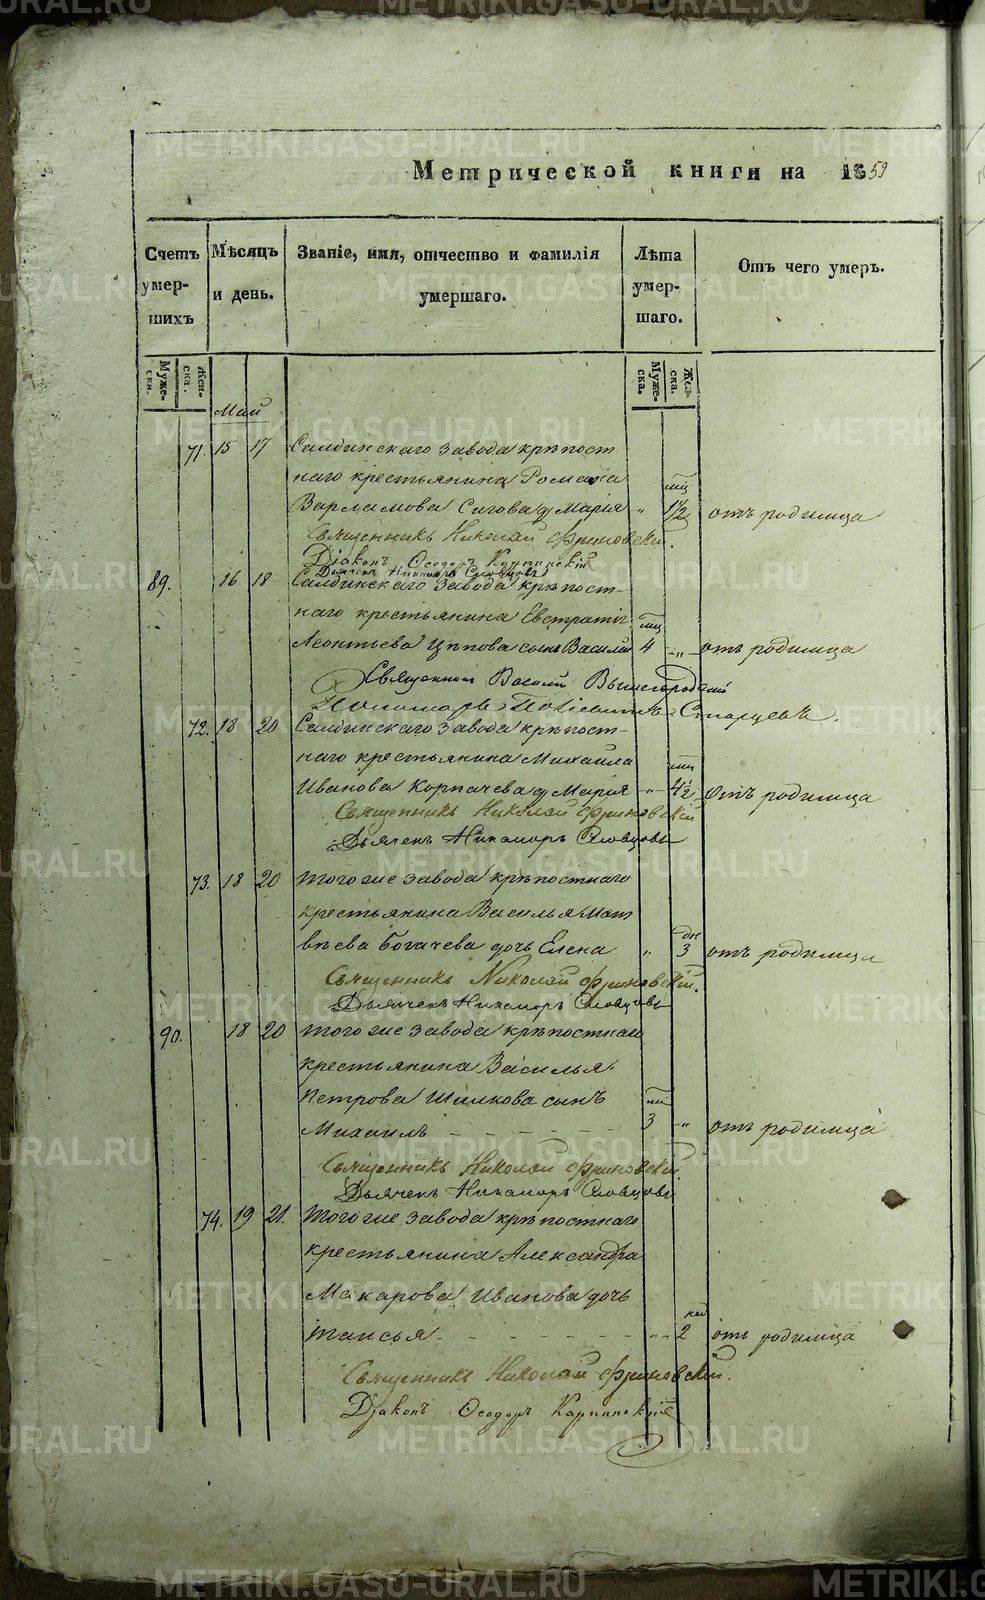 Метрической книги на 1859
Счетъ умершихъ
Мѣсяцъ и день.
Званіе, имя, отчество и фамилія умершаго.
Лѣта умершаго.
Отъ чего умеръ.
Мужеска.
Женска.
Мужеска.
Женска.
Май
71. 15 17 Салдинскаго завода крѣпост
наго крестьянина Романа
мц
Варламова Сигова д Марія „ 1 1/2 отъ родимца
Священникъ Николай
Діаконъ Ѳеодоръ Карпинскій
Дьячекъ Никаноръ Словцовъ
89. 16 18 Салдинскаго завода крѣпост-
наго крестьянина Евстратія
мц
Леонтьева сынъ Василій 4 „ отъ родимца
Священникъ Василій
Пономарь Старцевъ.
72. 18 20 Салдинскаго завода крѣпост-
наго крестьянина Михаила
мц
Иванова Корпачева д Марія „ 4 1/2 отъ родимца
Священникъ Николай
Дьячекъ Никаноръ Словцовъ
73. 18 20 Того же завода крѣпостнаго
крестьянина Василья Мат
дн
вѣева Богачева дочь Елена „ 3 отъ родимца
Священникъ Николай
Дьячекъ Никаноръ Словцовъ
90. 18 20 Того же завода крѣпостнаго
крестьянина Василья
Петрова Шилкова сынъ
мц
Михаилъ 3 „ отъ родимца
Священникъ Николай
Дьячекъ Никаноръ Словцовъ
74. 19 21. Того же завода крѣпостнаго
крестьянина Александра
Макарова Иванова дочь
нед
Таисья „ 2 отъ родимца
Священникъ Николай
Діаконъ Ѳеодоръ Карпинскій
METRIKI.GASO-URAL.RU